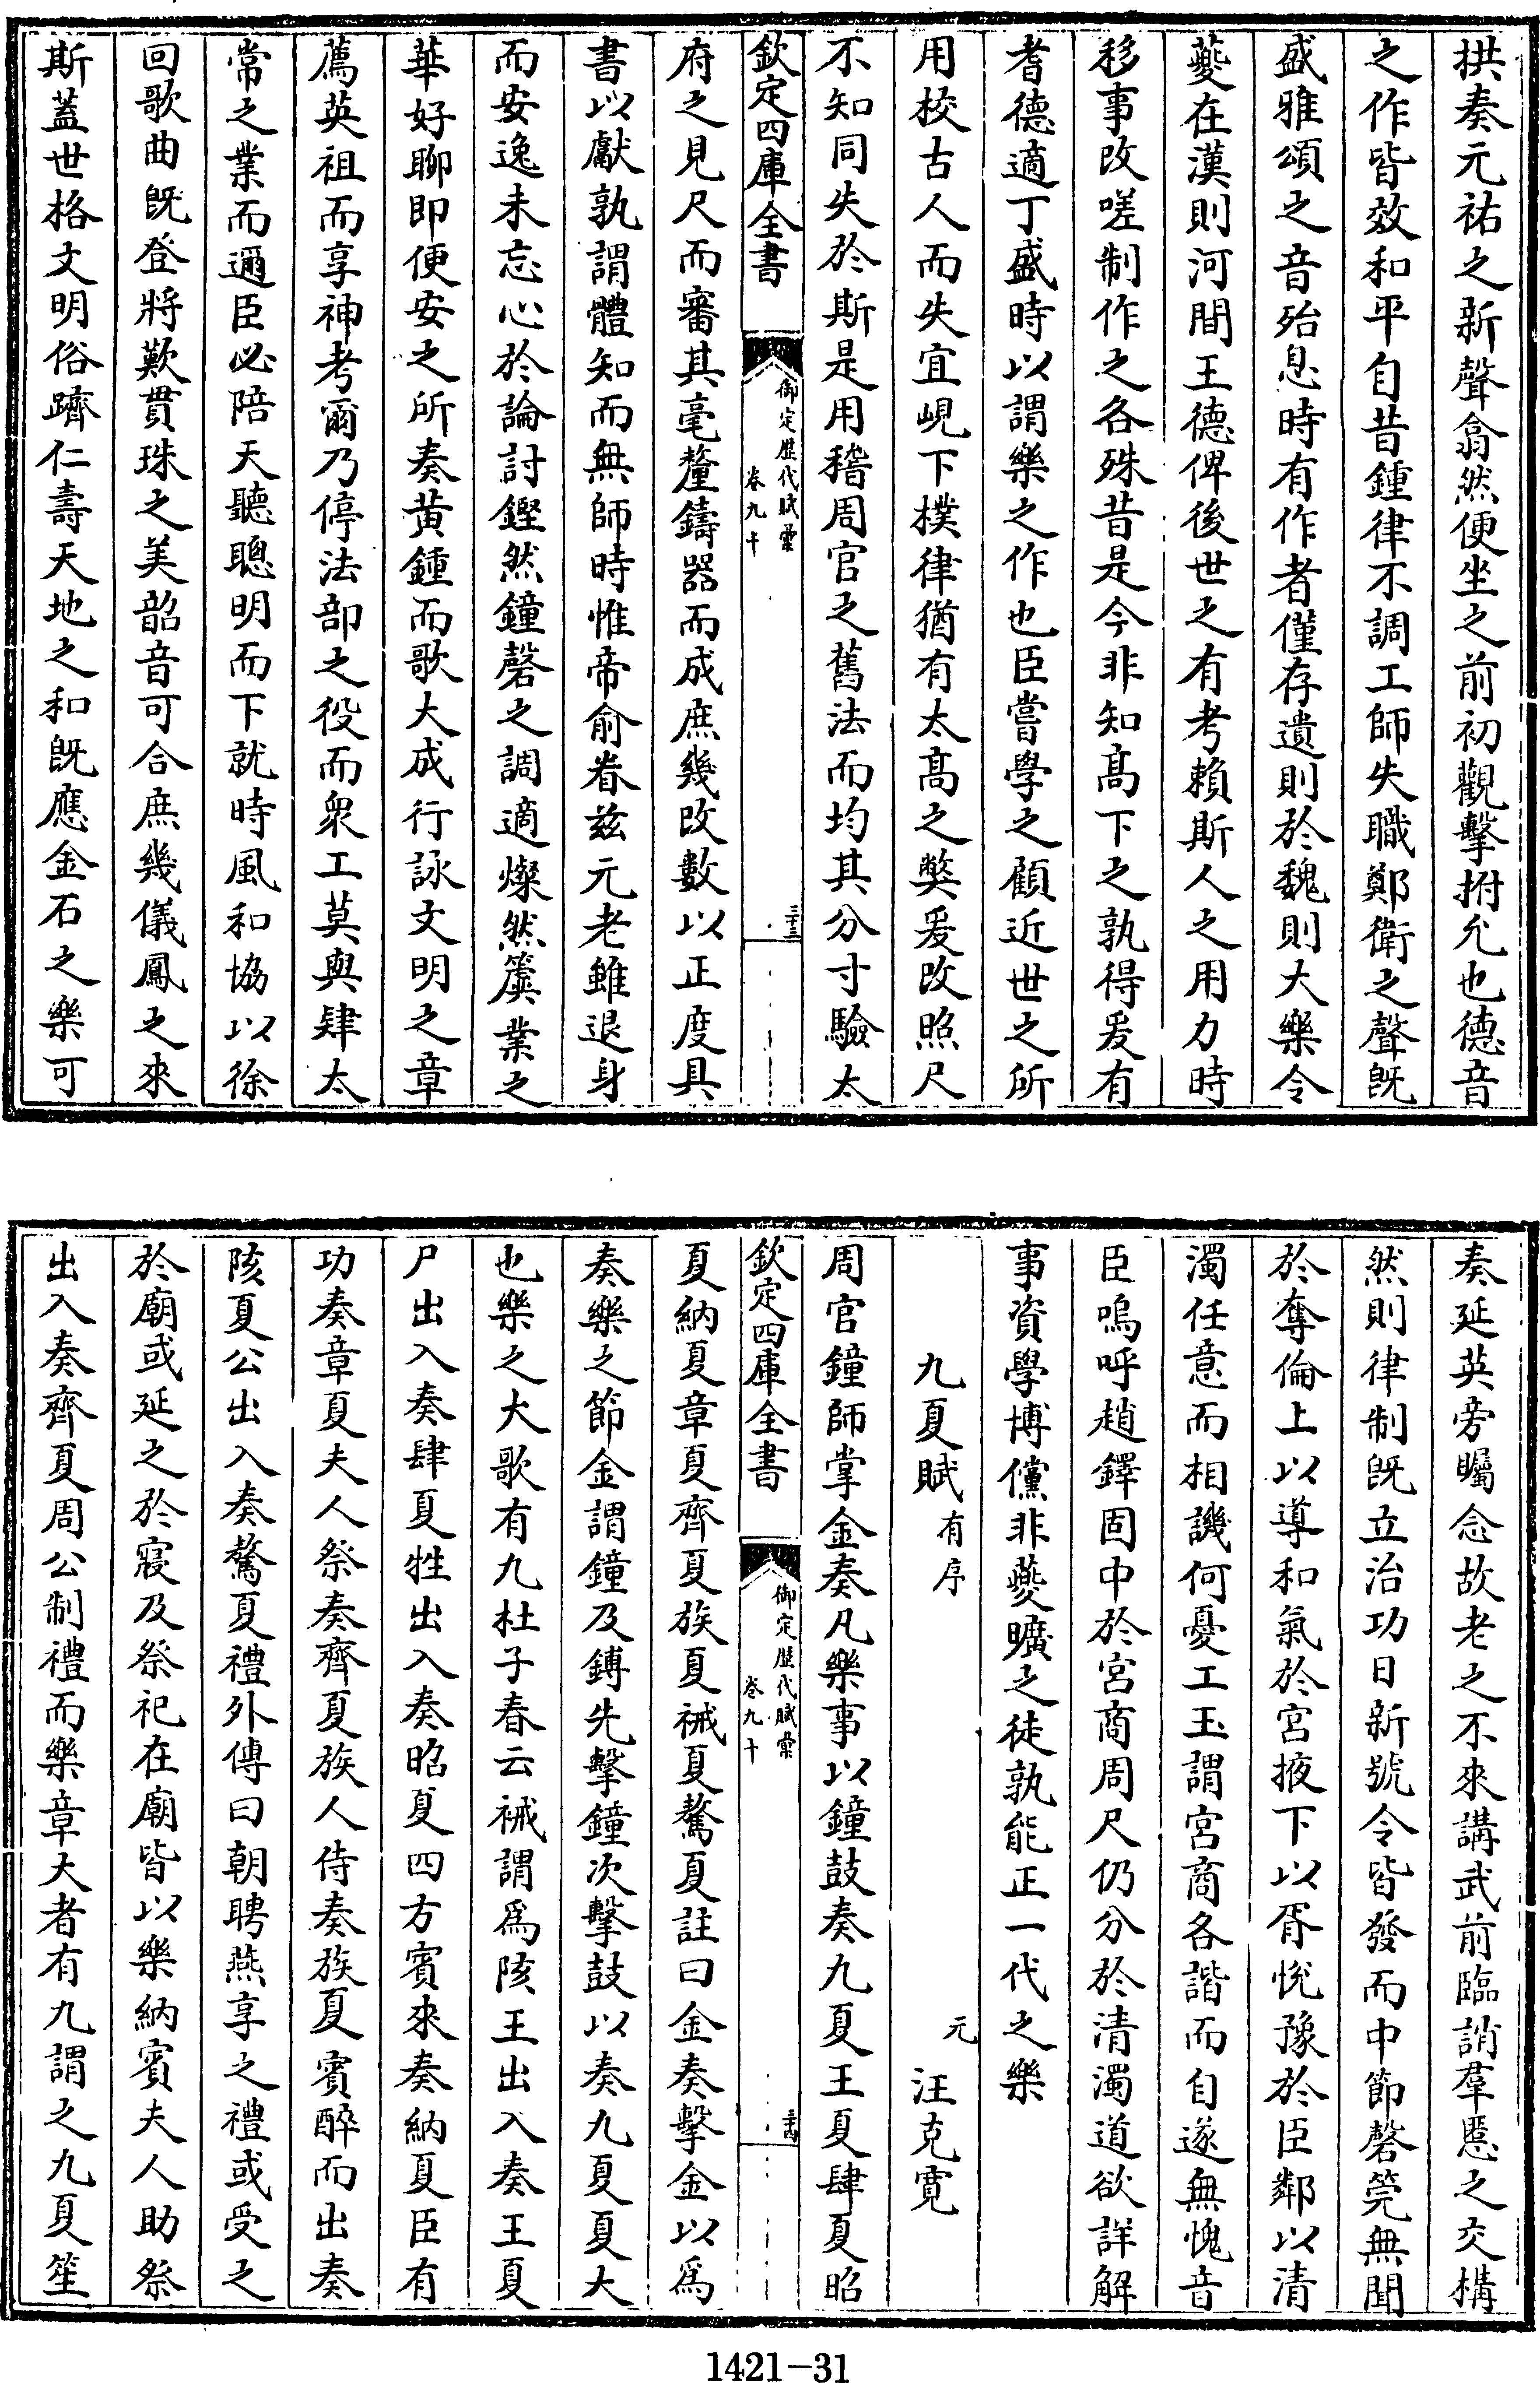 拱奏元祐之新聲翕然便坐之前初觀擊拊允也德音
之作皆效和平自昔鍾律不調工師失職鄭衛之聲旣
盛雅頌之音殆息時有作者僅存遺則於魏則大樂令
夔在漢則河間王德俾後世之有考賴斯人之用力時
移事改嗟制作之各殊昔是今非知髙下之孰得爰有
耆德適丁盛時以謂樂之作也臣嘗學之顧近世之所
用校古人而失宜峴下樸律猶有太髙之獘爰改照尺
不知同失於斯是用稽周官之舊法而均其分寸驗太
欽定四庫全書
御定歴代賦彙
卷九十
三十三
府之見尺而審其毫釐鑄器而成庶幾改數以正度具
書以獻孰謂體知而無師時惟帝俞眷兹元老雖退身
而安逸未忘心於論討鏗然鐘磬之調適燦然簴業之
華好聊即便安之所奏黄鍾而歌大成行詠文明之章
薦英祖而享神考爾乃停法部之役而衆工莫與肄太
常之業而邇臣必陪天聽聰明而下就時風和協以徐
回歌曲旣登將歎貫珠之美韶音可合庶幾儀鳳之來
斯蓋世格文明俗躋仁壽天地之和旣應金石之樂可
奏延英旁矚念故老之不來講武前臨誚羣慝之交構
然則律制旣立治功日新號令皆發而中節磬筦無聞
於奪倫上以導和氣於宮掖下以胥悦豫於臣鄰以清
濁任意而相譏何憂工玉謂宮商各諧而自遂無愧音
臣嗚呼趙鐸固中於宮商周尺仍分於清濁道欲詳解
事資學博儻非夔曠之徒孰能正一代之樂
九夏賦 有序 元 汪克寛
周官鐘師掌金奏凡樂事以鐘鼓奏九夏王夏肆夏昭
欽定四庫全書
御定歴代賦彙
卷九十
三十四
夏納夏章夏齊夏族夏祴夏驁夏註曰金奏擊金以爲
奏樂之節金謂鐘及鎛先擊鐘次擊鼓以奏九夏夏大
也樂之大歌有九杜子春云祴謂爲陔王出入奏王夏
尸出入奏肆夏牲出入奏昭夏四方賓來奏納夏臣有
功奏章夏夫人祭奏齊夏族人侍奏族夏賓醉而出奏
陔夏公出入奏驁夏禮外傳曰朝聘燕享之禮或受之
於廟或延之於寢及祭祀在廟皆以樂納賓夫人助祭
出入奏齊夏周公制禮而樂章大者有九謂之九夏笙
1421—31